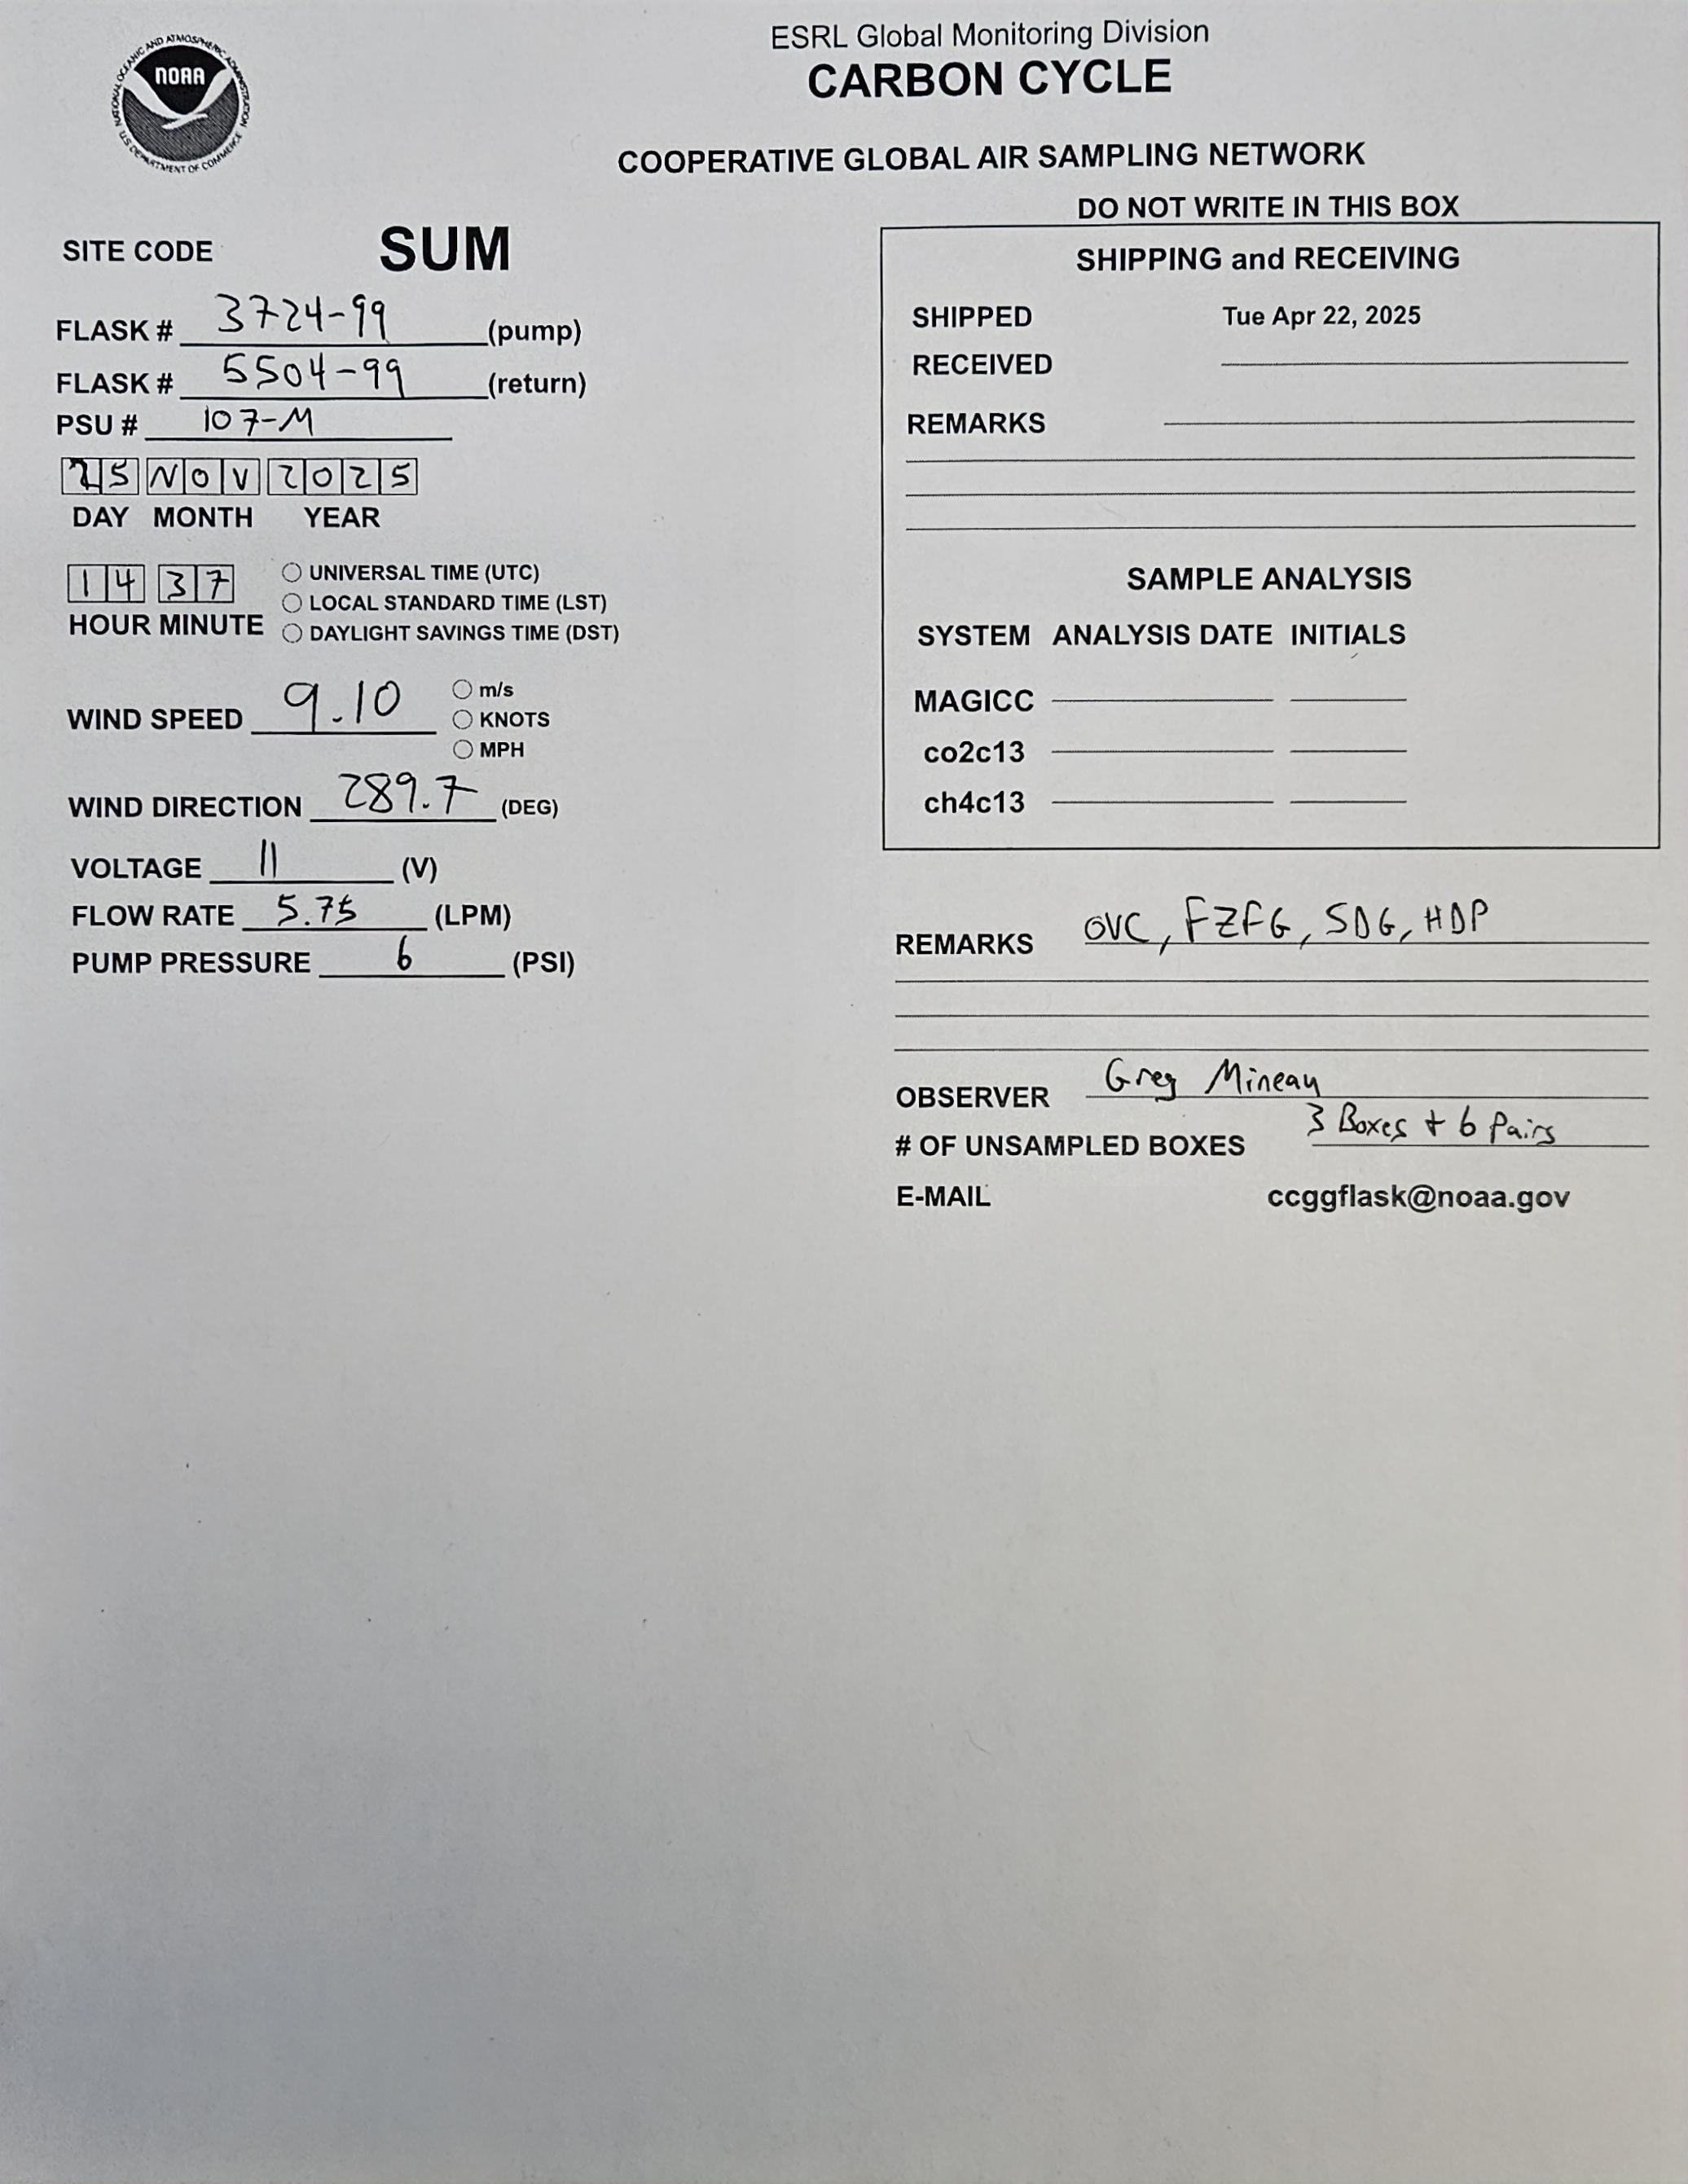 ESRL Global Monitoring Division
CARBON CYCLE
COOPERATIVE GLOBAL AIR SAMPLING NETWORK
NATIONAL OCEANIC AND ATMOSPHERIC ADMINISTRATION
NOAA
U.S. DEPARTMENT OF COMMERCE
SITE CODE SUM
FLASK # 3724-99 (pump)
FLASK # 5504-99 (return)
PSU # 107-M
25 NOV 2025
DAY MONTH YEAR
14 37
HOUR MINUTE
UNIVERSAL TIME (UTC)
LOCAL STANDARD TIME (LST)
DAYLIGHT SAVINGS TIME (DST)
WIND SPEED 9.10
m/s
KNOTS
MPH
WIND DIRECTION 289.7 (DEG)
VOLTAGE 11 (V)
FLOW RATE 5.75 (LPM)
PUMP PRESSURE 6 (PSI)
DO NOT WRITE IN THIS BOX
SHIPPING and RECEIVING
SHIPPED Tue Apr 22, 2025
RECEIVED
REMARKS
SAMPLE ANALYSIS
SYSTEM ANALYSIS DATE INITIALS
MAGICC
co2c13
ch4c13
REMARKS OVC, FZFG, SDG, HDP
OBSERVER Greg Mineau
# OF UNSAMPLED BOXES 3 Boxes + 6 Pairs
E-MAIL ccggflask@noaa.gov